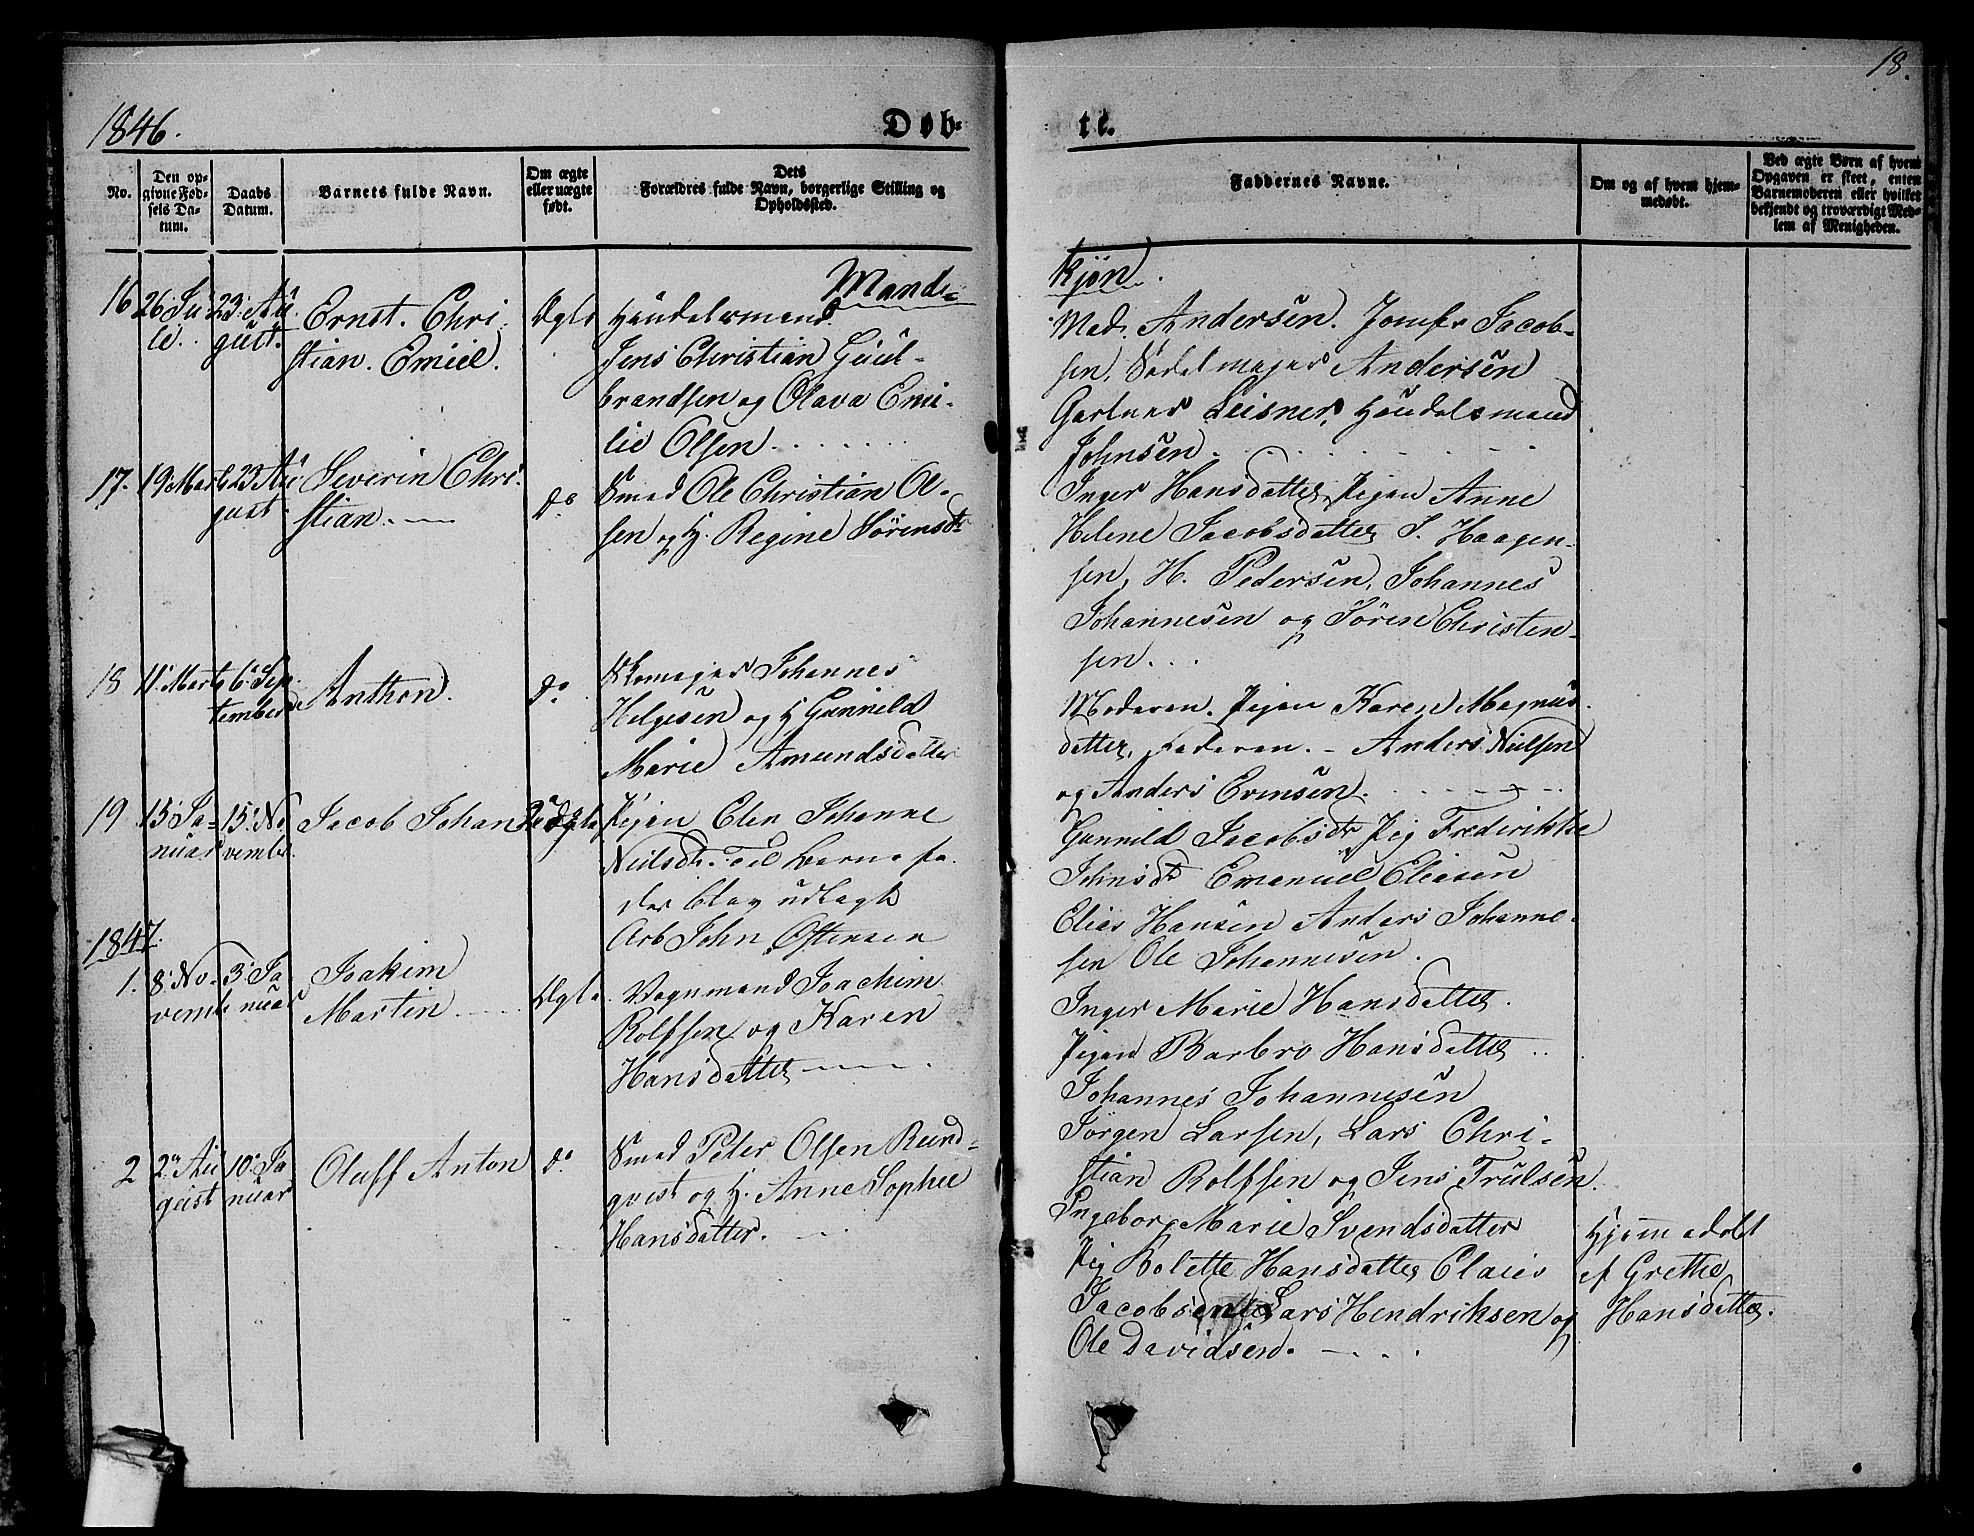 18.
1846.
Døb-
te.
No.
Den op-
givne Fød-
sels Da-
tum.
Daabs
Datum.
Barnets fulde Navn.
Om ægte
eller uægte
født.
Dets
Forældres fulde Navn, borgerlige Stilling og
Opholdssted.
Faddernes Navne.
Om og af hvem hjem-
medøbt.
Ved ægte Børn af hvem
Opgaven er skeet, enten
Barnemoderen eller hvilket
bekjendt og troværdigt Med-
lem af Menigheden.
Mand-
kjøn.
16
26 Ju
li.
23. Au
gust.
Ernst. Chri-
stian. Emiil.
Ægte
Handelsmand
Jens Christian Guul-
brandsen og Olava Emi-
lie Olsen
Mad. Andersen. Jomfr Jacob-
sen, Sadelmager Andersen
Gartner Leisner, Handelsmand
Johnsen.
17.
19 Mart
23 Au
gust
Severin Chri-
stian.
do
Smed Ole Christian Ol-
sen og H. Regine Sørensdtr
Inger Hansdatter, Pigen Anne
Helene Jacobsdatter J. Haagen-
sen, H. Pedersen, Johannes
Johannesen og Sören Christen-
sen.
18
11 Marts
6 Sep-
tember
Anthon.
do.
Skomager Johannes
Helgesen og H Gunnild
Marie Amundsdatter
Moderen. Pigen Karen Magnus-
datter, Faderen. - Anders Nielsen
og Anders Evensen.
19
15 Ja-
nuar
15. No
vember.
Jacob Johan
Uægte
Pigen Elen Johanne
Nielsdtr. Til Barnefa-
der blev udlagt
Arb John Østensen
Gunnild Jacobsdtr Pig Frederikke
Johnsdtr Emanuel Eliesen
Elias Hansen Anders Johanne-
sen Ole Johannesen.
1847.
1.
8. No-
vemb
3. Ja
nuar
Joakim
Martin
Ægte
Vognmand Joachim
Rolfsen og Karen
Hansdatter
Inger Marie Hansdatter.
Pigen Barbro Hansdatter
Johannes Johannesen
Jörgen Larsen, Lars Chri-
stian Rolfsen og Jens Trulsen.
2
2. Au
gust
10. Ja
nuar
Oluff Anton
do.
Smed Peter Olsen Rund-
qvist og H. Anne Sophie
Hansdatter.
Ingeborg Marie Svendsdatter
Pig Bolette Hansdatter Claus
Jacobsen Lars Hendriksen og
Ole Davidsen.
Hjemmedøbt
af Grethe
Hansdatter.